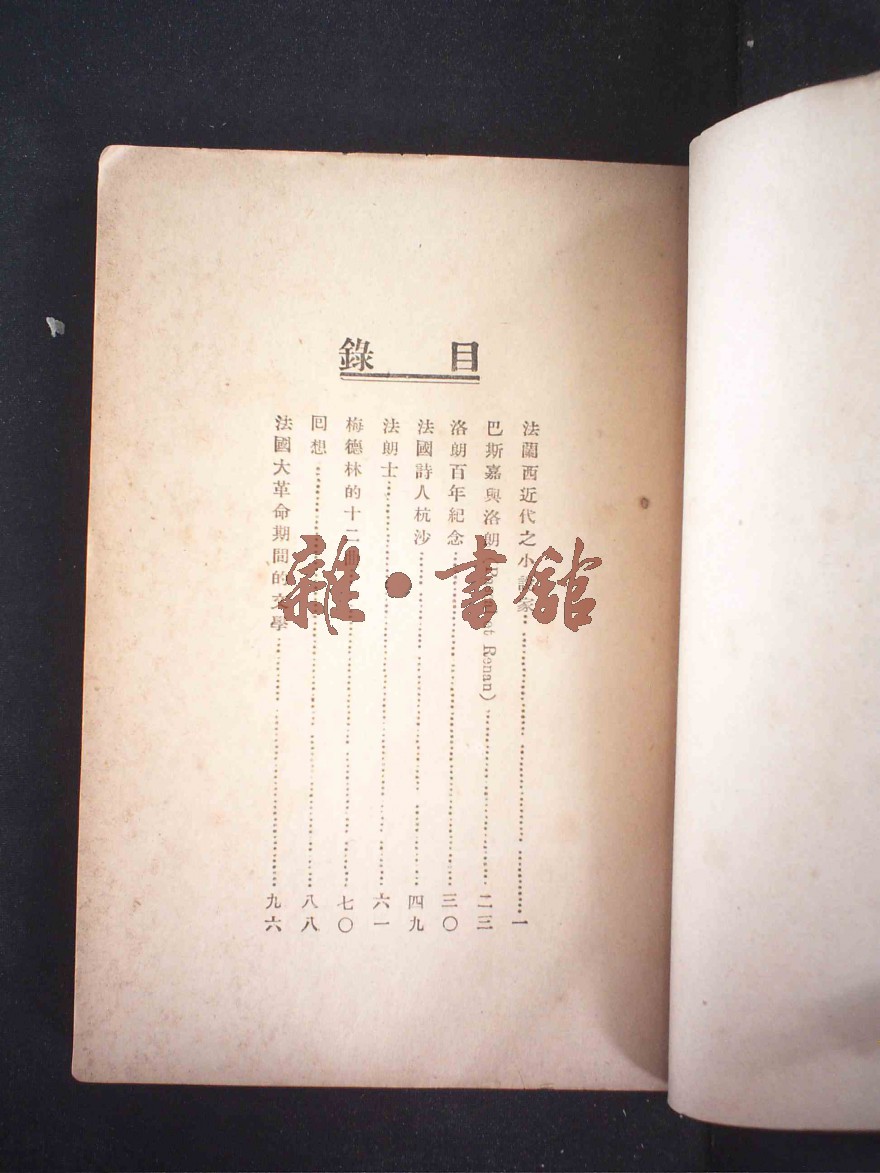 目錄
法蘭西近代之小說家 一
巴斯嘉與洛朗 et Renan) 二三
洛朗百年紀念 三〇
法國詩人杭沙 四九
法朗士 六一
梅德林的十二曲 七〇
回想 八八
法國大革命期間的文學 九六
雜·書舘